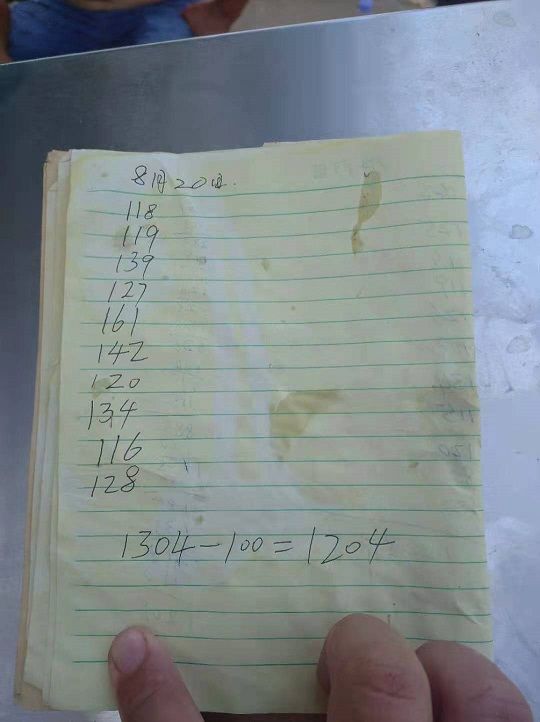 8月20日.
118
119
139
127
161
142
120
134
116
128
1304-100=1204